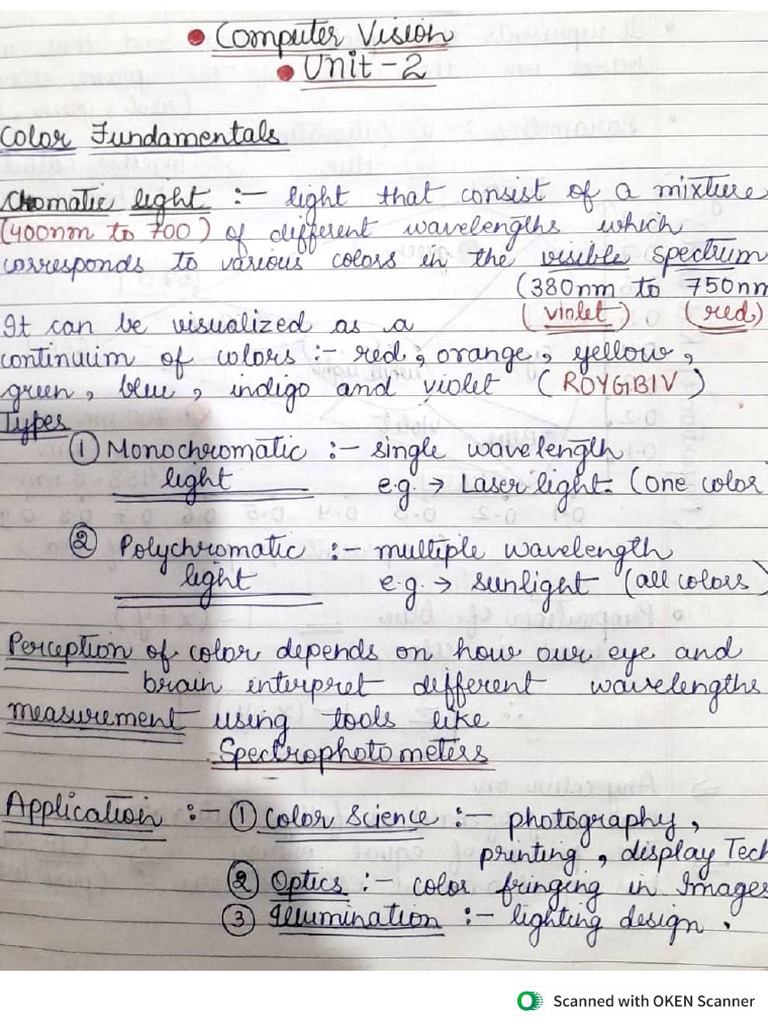 • Computer Vision
• Unit-2
Color Fundamentals
Chromatic light :- light that consist of a mixture
(400nm to 700) of different wavelengths which
corresponds to various colors in the visible spectrum
(380nm to 750nm
It can be visualized as a (violet) (red)
continuim of colors :- red, orange, yellow,
green, blue, indigo and violet (ROYGBIV)
Types
① Monochromatic :- single wavelength
light e.g. → Laser light. (one color
② Polychromatic :- multiple wavelength
light e.g. → sunlight (all colors)
Perception of color depends on how our eye and
brain interpret different wavelengths
measurement using tools like
Spectrophotometers
Application :- ① Color Science :- photography,
printing, display Tech
② Optics :- color fringing in Images
③ Illumination :- lighting design.
Scanned with OKEN Scanner